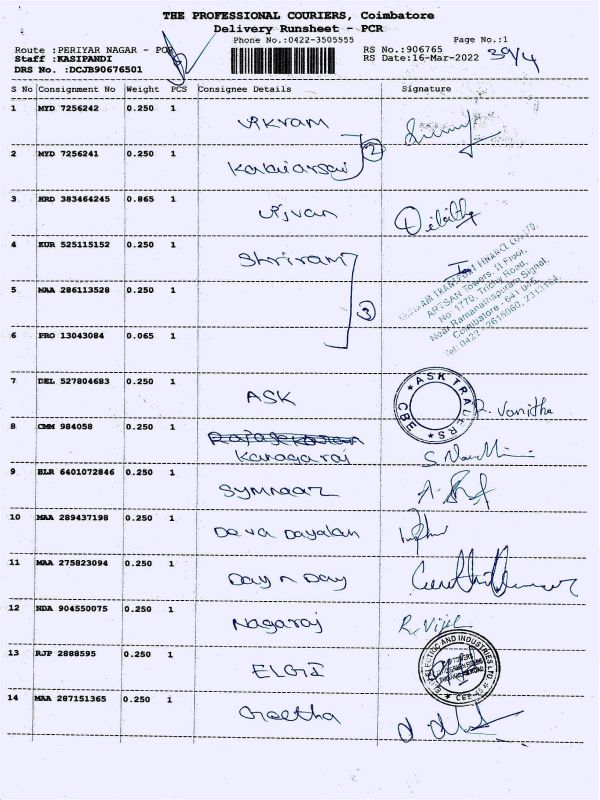 THE PROFESSIONAL COURIERS, Coimbatore
Delivery Runsheet - PCR
Phone No.:0422-3505555 Page No.:1
Route :PERIYAR NAGAR - PCR RS No.:906765 39/4
Staff :KASIPANDI RS Date:16-Mar-2022
DRS No. :DCJB90676501
S No Consignment No Weight PCS Consignee Details Signature
1 MYD 7256242 0.250 1 Vikram
2 MYD 7256241 0.250 1 Kalaiarsai 2
3 HRD 383464245 0.865 1 Vijvan
4 KUR 525115152 0.250 1 Shriram
SHRIRAM TRANSPORT FINANCE CO. LTD.
ARTSAN Towers, II Floor,
No. 1770, Trichy Road,
Near Ramanathapuram Signal,
Coimbatore - 641 045.
5 MAA 286113528 0.250 1 3
6 PRO 13043084 0.065 1
7 DEL 527804683 0.250 1 ASK ASK TRADERS CBE R. Vanitha
8 CMM 984058 0.250 1 Kanagaraj
9 BLR 6401072846 0.250 1
10 MAA 289437198 0.250 1 Deva Dayalan
11 MAA 275823094 0.250 1 Day n Day
12 NDA 904550075 0.250 1 Nagaraj R. Vijil
13 RJP 2888595 0.250 1 ELGI ELECTRIC AND INDUSTRIES LTD
14 MAA 287151365 0.250 1 Geetha